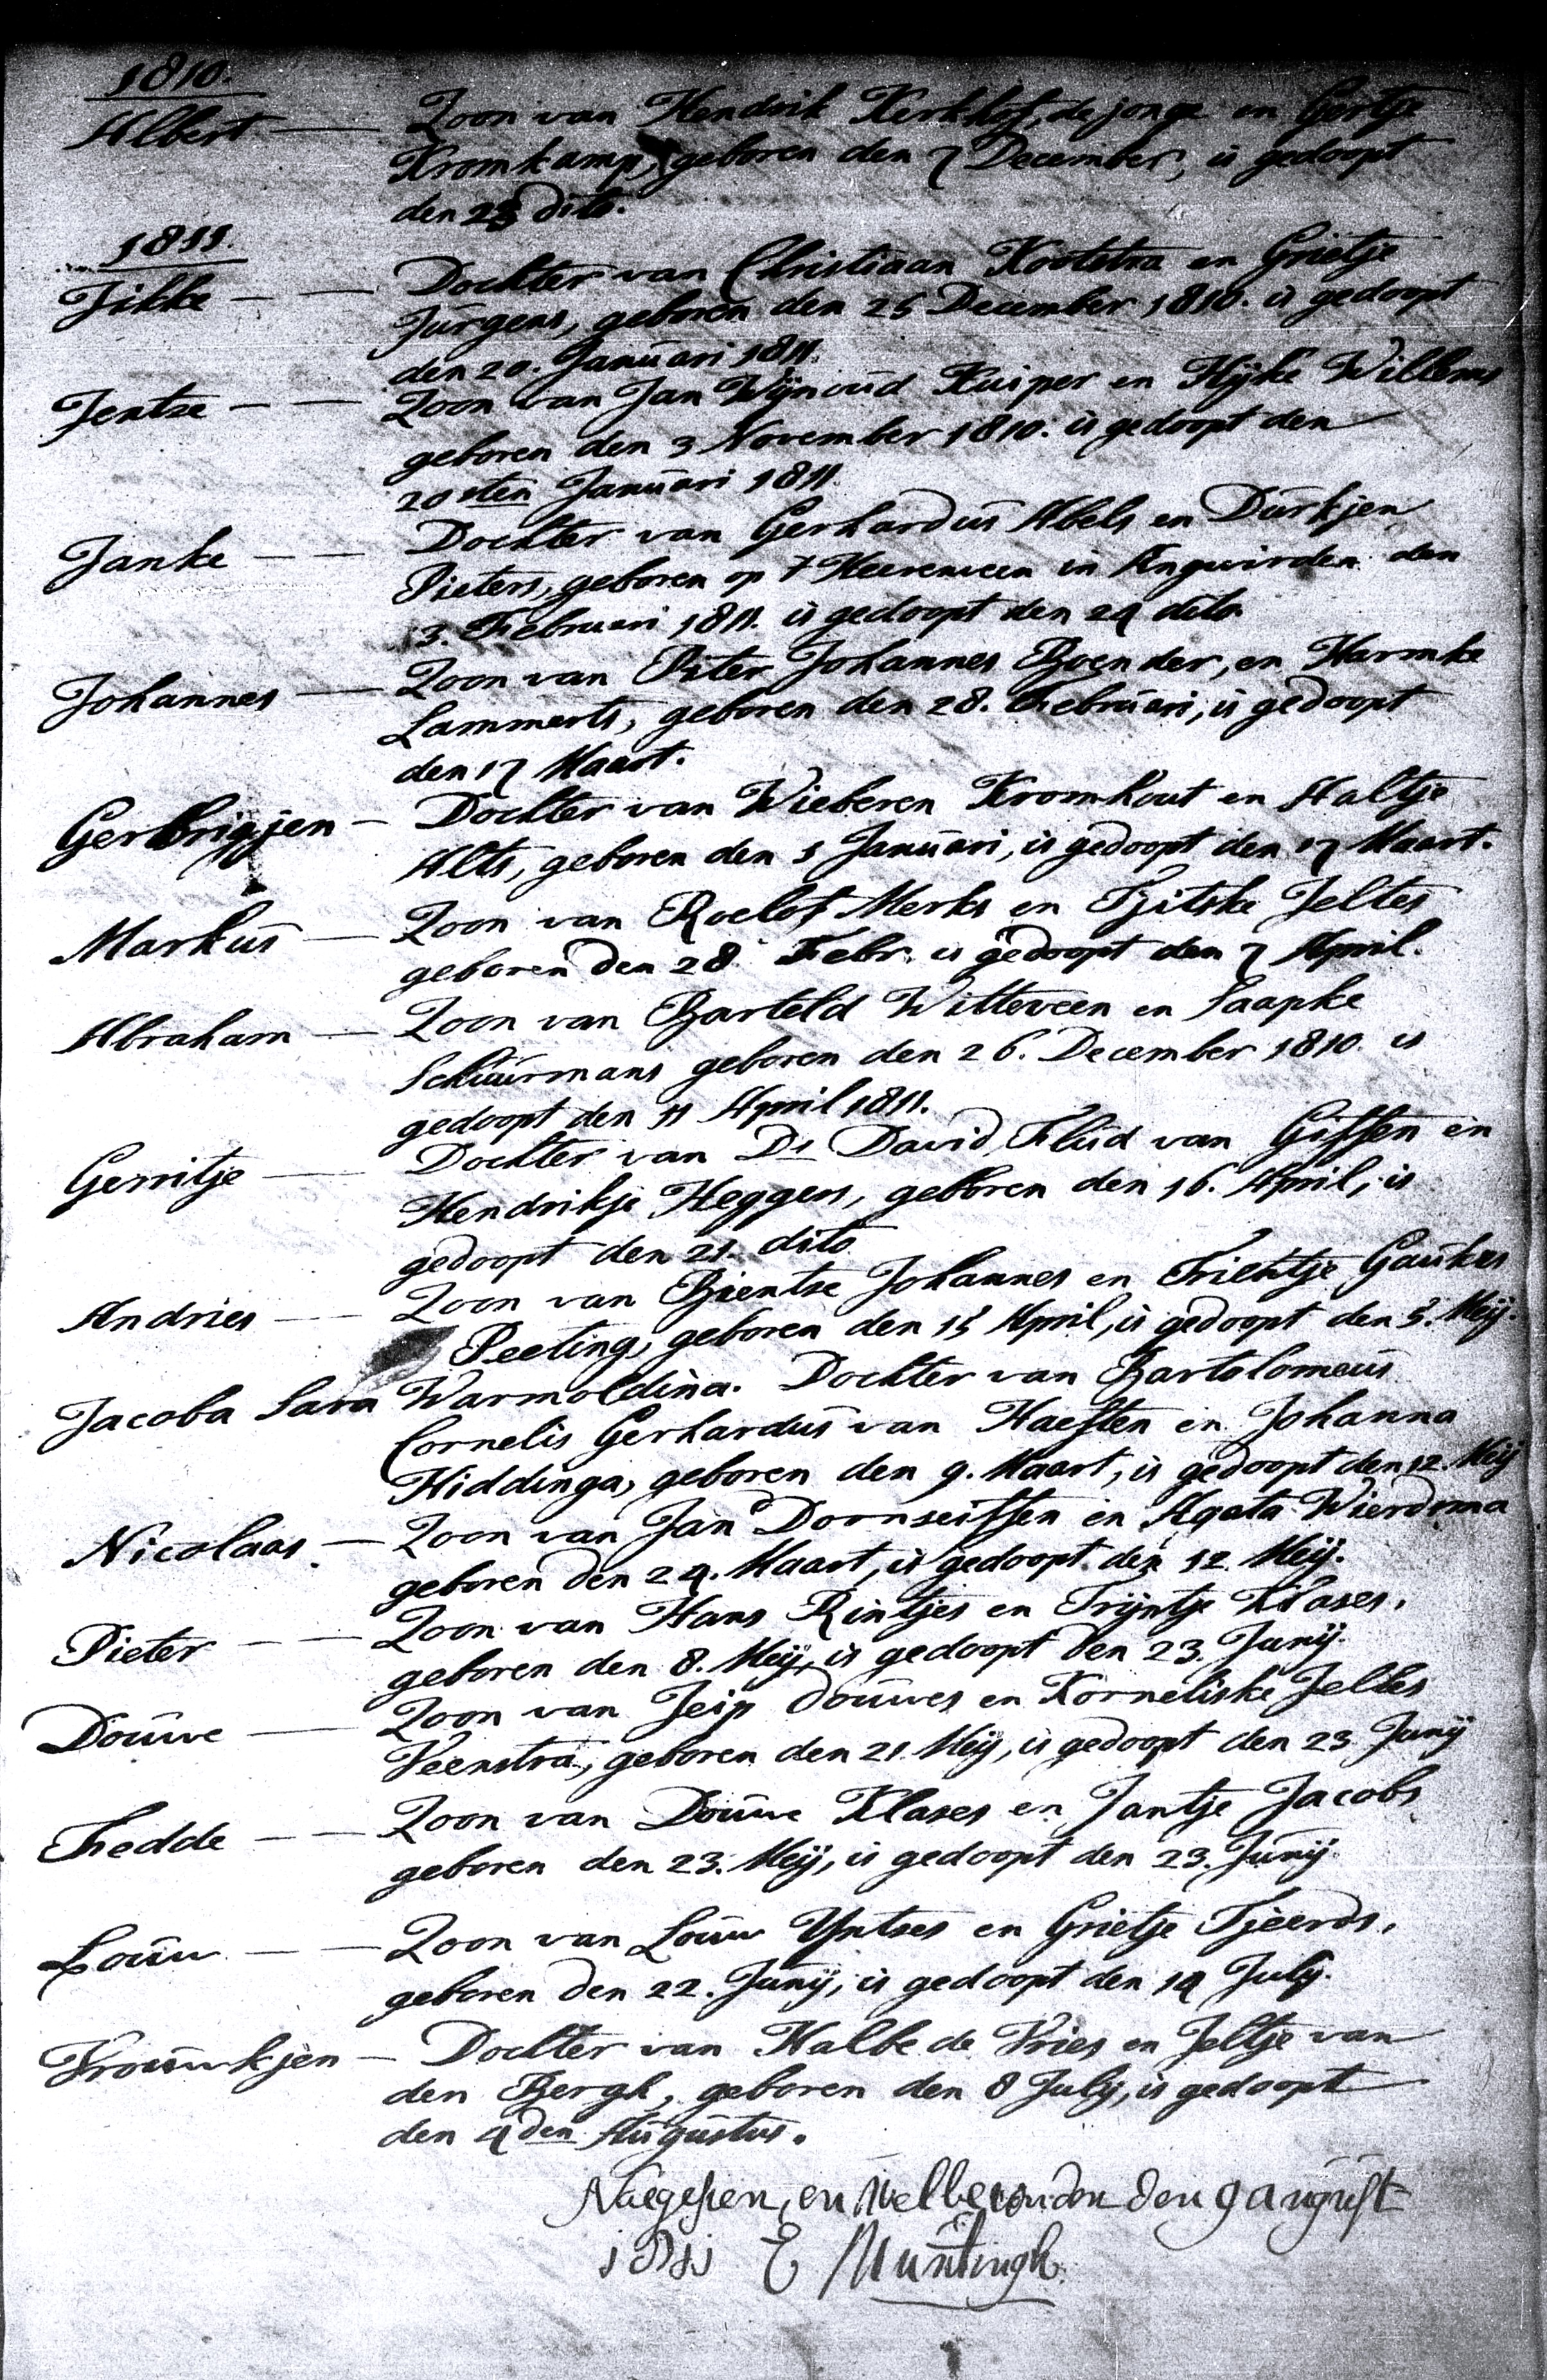 1810.
Albert — Zoon van Hendrik Kerkhof, de jonge en Gertje
Kromkamp, geboren den 7 December, is gedoopt
den 23 dito.
1811.
Jikke — — Dochter van Christiaan Kootstra en Grietje
Jurgens, geboren den 25 December 1810. is gedoopt
den 20. Januari 1811.
Jentze — — Zoon van Jan Wijnoud Kuiper en Hijke Willems
geboren den 3 November 1810. is gedoopt den
20sten Januari 1811
Janke — — Dochter van Gerhardus Abels en Durkjen
Pieters, geboren op 't Heereveen in Ængwirden den
3. Februari 1811. is gedoopt den 24 dito
Johannes — Zoon van Pieter Johannes Boender, en Harmke
Lammerts, geboren den 28. Februari, is gedoopt
den 17 Maart.
Gerbrigjen — Dochter van Wieberen Kromhout en Aaltje
Alts, geboren den 1 Januari, is gedoopt den 17 Maart.
Markus — Zoon van Roelof Merks en Tjitske Jeltes
geboren den 28 Febr. is gedoopt den 7 April.
Abraham — Zoon van Barteld Witteveen en Saapke
Schuurmans geboren den 26. December 1810. is
gedoopt den 11 April 1811.
Gerritje — Dochter van Ds David Flud van Giffen en
Hendrikje Heggers, geboren den 16. April, is
gedoopt den 21. dito
Andries — — Zoon van Bientse Johannes en Trientje Gaukes
Peeting, geboren den 15 April, is gedoopt den 5. Meij.
Jacoba Sara Warmoldina. Dochter van Bartolomeus
Cornelis Gerhardus van Haeften en Johanna
Hiddinga, geboren den 9. Maart, is gedoopt den 12. Meij
Nicolaas — Zoon van Jan Dornseiffen en Agata Wierdsma
geboren den 24. Maart, is gedoopt den 12 Meij.
Pieter — — Zoon van Hans Rintjes en Trijntje Klases,
geboren den 8. Meij, is gedoopt den 23. Junij.
Douwe — Zoon van Jeip Douwes en Korneliske Jelles
Veenstra, geboren den 21. Meij, is gedoopt den 23 Junij
Fedde — — Zoon van Douwe Klases en Jantje Jacobs
geboren den 23. Meij, is gedoopt den 23. Junij
Louw — — Zoon van Louw Yntses en Grietje Tjeerds,
geboren den 22. Junij, is gedoopt den 14 July.
Vrouwkjen — Dochter van Halbe de Vries en Jeltje van
den Bergh, geboren den 8 July, is gedoopt
den 4den Augustus.
Naegesien, en wel bevonden den 9 august
1811 E Muntingh